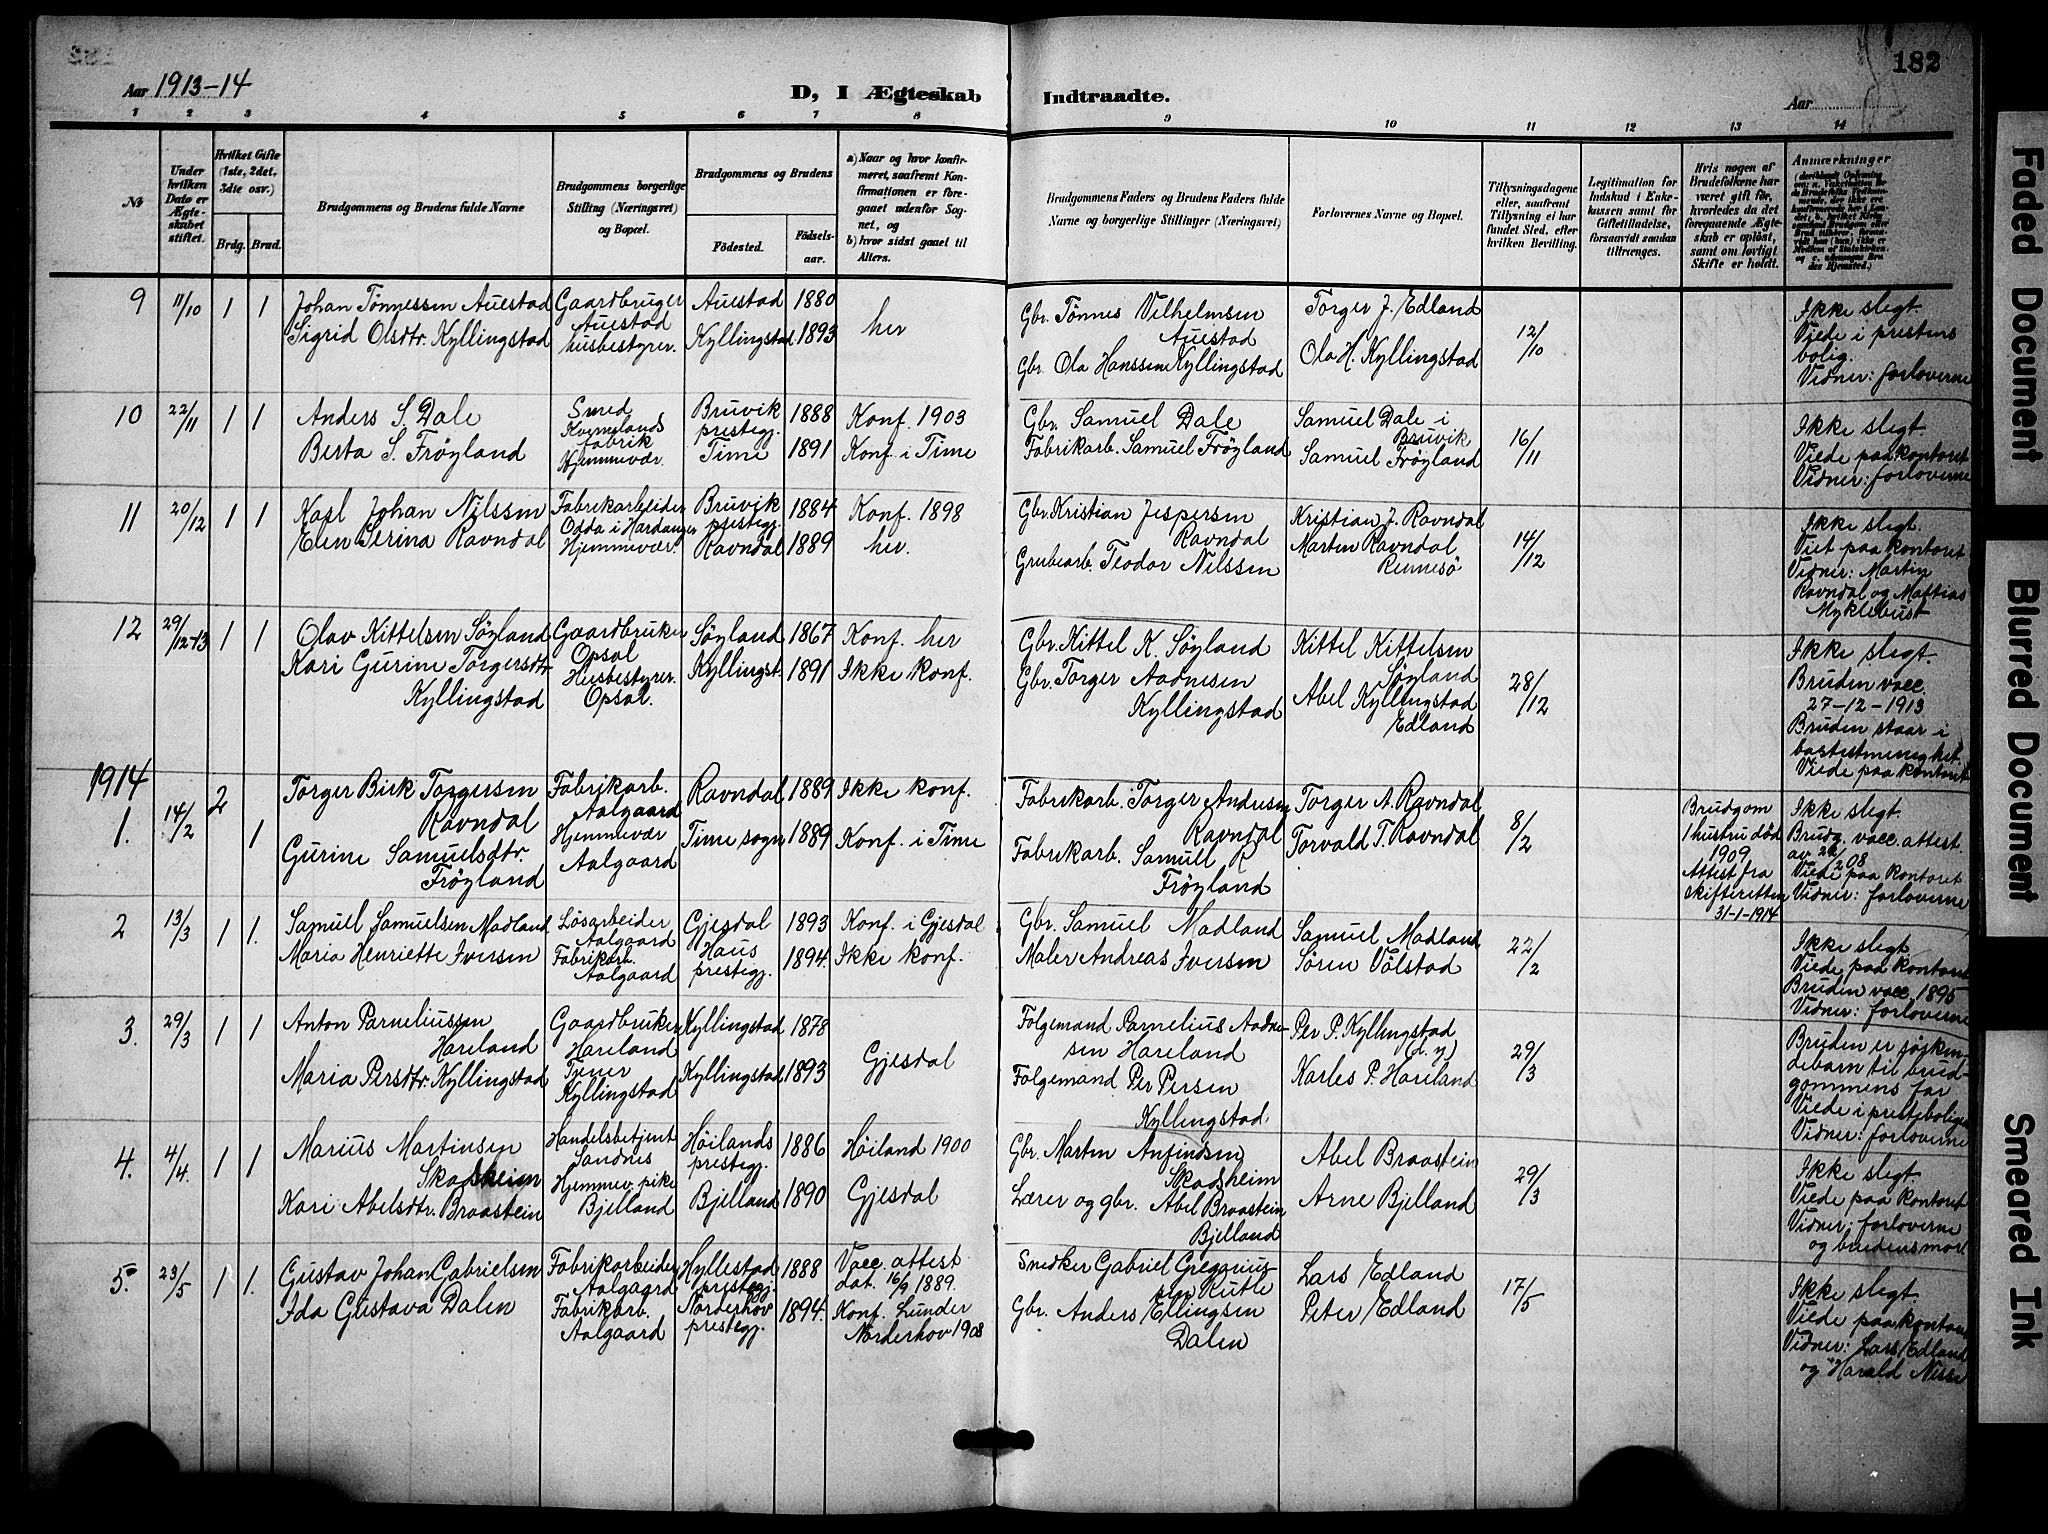 182
Aar 1913-14
D, I Ægteskab Indtraadte.
Aar
1 2 3 4 5 6 7 8 9 10 11 12 13 14
No
Under hvilken Dato er Ægteskabet stiftet.
Hvilket Gifte (1ste, 2det, 3die osv.)
Brdg. Brud.
Brudgommens og Brudens fulde Navne
Brudgommens borgerlige Stilling (Næringsvei) og Bopæl.
Brudgommens og Brudens
Födested. Födsels-aar.
a) Naar og hvor konfirmeret, saafremt Konfirmationen er foregaaet udenfor Sognet, og
b) hvor sidst gaaet til Alters.
Brudgommens Faders og Brudens Faders fulde Navne og borgerlige Stillinger (Næringsvei)
Forlovernes Navne og Bopæl.
Tillysningsdagene eller, saafremt Tillysning ei har fundet Sted, efter hvilken Bevilling.
Legitimation for Indskud i Enkekassen samt for Giftetilladelse, forsaavidt saadan tiltrænges.
Hvis nogen af Brudefolkene har været gift för, hvorledes da det foregaaende Ægteskab er oplöst, samt om lovligt Skifte er holdt.
Anmærkninger
9 11/10 1 1
Johan Tönnessen Auestad
Sigrid Olsdtr. Kyllingstad
Gaardbruger
Auestad
husbestyrer.
Auestad 1880
Kyllingstad 1893
her
Gbr. Tönnes Vilhelmsen
Auestad
Gbr. Ola Hanssen Kyllingstad
Torger J. Edland
Ola H. Kyllingstad
12/10
Ikke slegt.
Viede i prestens
bolig.
Vidner: forloverne
10 22/11 1 1
Anders S. Dale
Berta S. Fröyland
Smed
Kvernelands
fabrik
Hjemmevær.
Bruvik
prestegj. 1888
Time 1891
Konf. 1903
Konf. i Time
Gbr. Samuel Dale
Fabrikarb. Samuel Fröyland
Samuel Dale i
Bruvik
Samuel Fröyland
16/11
Ikke slegt
Viede paa kontoret
Vidner: forloverne
11 20/12 1 1
Karl Johan Nilssen
Elen Serina Ravndal
Fabrikarbeider
Odda i Hardanger
Hjemmevær.
Bruvik
prestegj. 1884
Ravndal 1889
Konf. 1898
her.
Gbr. Kristian Jespersen
Ravndal
Grubearb. Teodor Nilssen
Kristian J. Ravndal
Marten Ravndal
Rennesö
14/12
Ikke slegt.
Viet paa kontoret
Vidner: Martin
Ravndal og Mattias
Myklebust
12 29/12-13 1 1
Olav Kittelsen Söyland
Kari Gurine Torgersdtr.
Kyllingstad
Gaardbruker
Opsal
Husbestyrer.
Opsal.
Söyland 1867
Kyllingst. 1891
Konf. her
Ikke konf.
Gbr. Kittel K. Söyland
Gbr. Torger Aadnesen
Kyllingstad
Kittel Kittelsen
Söyland
Abel Kyllingstad
Edland
28/12
Ikke slegt.
Bruden vacc.
27-12-1913
Bruden staar i
Viede paa kontoret
1914
1. 14/2 2 1
Torger Birk Torgersen
Ravndal
Gurine Samuelsdtr.
Fröyland
Fabrikarb.
Aalgaard
Hjemmevær
Aalgaard
Ravndal 1889
Time sogn 1889
Ikke konf.
Konf. i Time
Fabrikarb. Torger Andresen
Ravndal
Fabrikarb. Samuel R
Fröyland
Torger A. Ravndal
Torvald T. Ravndal
8/2
Brudgom
1 hustru död
1909.
Attest fra
skifteretten
31-1-1914
Ikke slegt.
Brudg. vacc. attest.
Viede paa kontoret
Vidner: forloverne
2 13/3 1 1.
Samuel Samuelsen Madland
Maria Henriette Iversen
Lösarbeider
Aalgaard
Fabrikarb.
Aalgaard
Gjesdal 1893
Haus
prestegj. 1894.
Konf. i Gjesdal
Ikke konf.
Gbr. Samuel Madland
Maler Andreas Iversen
Samuel Madland
Sören Völstad
22/2
Ikke slegt
Viede paa kontoret
Bruden vacc. 1895
Vidner: forloverne
3. 29/3 1 1
Anton Parneliussen
Hareland
Maria Persdtr. Kyllingstad
Gaardbruker
Hareland
Tyner
Kyllingstad
Kyllingstad 1878
Kyllingstad 1893
Gjesdal
Folgemand Parnelius Aadne-
sen Hareland
Folgemand Per Persen
Kyllingstad.
Per P. Kyllingstad
(d. y)
Karles P. Hareland
29/3
Bruden er söjken-
debarn til brud-
gommens far
Viede i prestebolig
Vidner: forloverne
4. 4/4. 1 1
Marius Martinsen
Skadsheim
Kari Abelsdtr. Braastein
Handelsbetjent
Sandnes
Hjemmev. pike
Bjelland
Höilands
prestegj. 1886
Bjelland 1890
Höiland 1900
Gjesdal
Gbr. Marten Anfindsen
Skadsheim
Lærer og gbr. Abel Braastein
Bjelland
Abel Braastein
Arne Bjelland
29/3
Ikke slegt
Viede paa kontoret
Vidner: forloverne
og brudens mor
5. 23/5 1 1.
Gustav Johan Gabrielsen
Ida Gustava Dalen
Fabrikarbeider
Aalgaard
Fabrikarb.
Aalgaard
Hyllestad
prestegj. 1888
Norderhov
prestegj. 1894.
Vacc. attest
dat. 16/9 1889.
Konf. Lunder
Norderhov 1908
Snedker Gabriel Gregorius-
sen Rutle
Gbr. Anders Ellingsen
Dalen
Lars Edland
Peter Edland
17/5
Ikke slegt
Viede paa kontoret
Vidner: Lars Edland
og Harald
Faded Document
Blurred Document
Smeared Ink